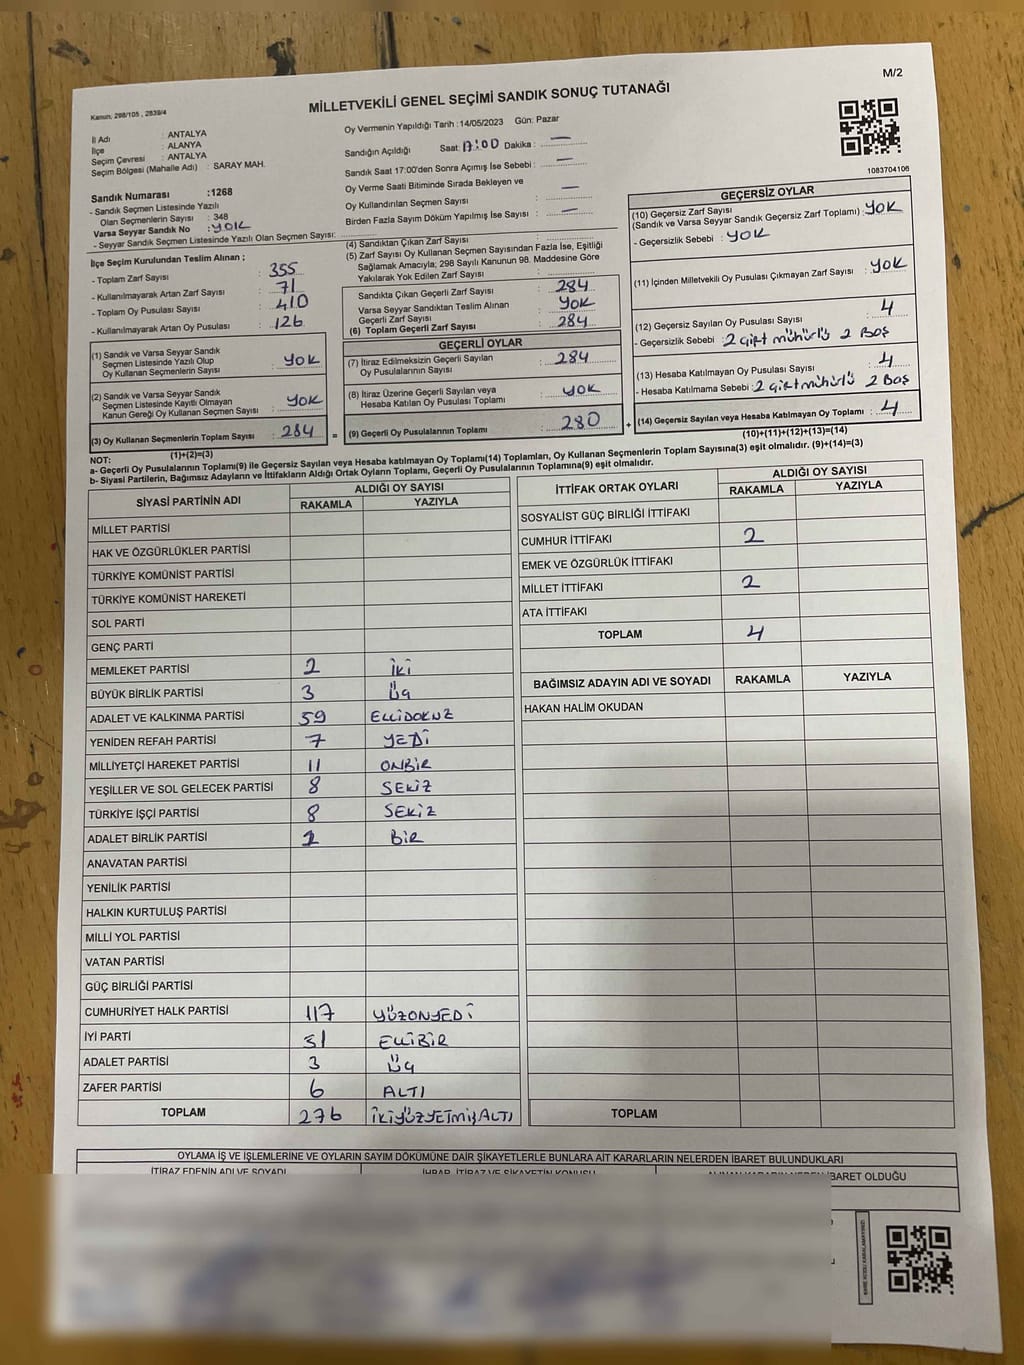 M/2
Kanun: 298/105 , 2839/4
MİLLETVEKİLİ GENEL SEÇİMİ SANDIK SONUÇ TUTANAĞI
İl Adı : ANTALYA
İlçe : ALANYA
Seçim Çevresi : ANTALYA
Seçim Bölgesi (Mahalle Adı) : SARAY MAH.
Sandık Numarası :1268
- Sandık Seçmen Listesinde Yazılı
Olan Seçmenlerin Sayısı : 348
Varsa Seyyar Sandık No : YOK
- Seyyar Sandık Seçmen Listesinde Yazılı Olan Seçmen Sayısı:
İlçe Seçim Kurulundan Teslim Alınan ;
- Toplam Zarf Sayısı : 355
- Kullanılmayarak Artan Zarf Sayısı : 71
- Toplam Oy Pusulası Sayısı : 410
- Kullanılmayarak Artan Oy Pusulası : 126
(1) Sandık ve Varsa Seyyar Sandık
Seçmen Listesinde Yazılı Olup
Oy Kullanan Seçmenlerin Sayısı : YOK
(2) Sandık ve Varsa Seyyar Sandık
Seçmen Listesinde Kayıtlı Olmayan
Kanun Gereği Oy Kullanan Seçmen Sayısı : YOK
(3) Oy Kullanan Seçmenlerin Toplam Sayısı : 284 =
(1)+(2)=(3)
Oy Vermenin Yapıldığı Tarih :14/05/2023 Gün: Pazar
Sandığın Açıldığı Saat: 17:00 Dakika : —
Sandık Saat 17:00'den Sonra Açımış İse Sebebi : —
Oy Verme Saati Bitiminde Sırada Bekleyen ve
Oy Kullandırılan Seçmen Sayısı : —
Birden Fazla Sayım Döküm Yapılmış İse Sayısı : —
(4) Sandıktan Çıkan Zarf Sayısı :
(5) Zarf Sayısı Oy Kullanan Seçmen Sayısından Fazla İse, Eşitliği
Sağlamak Amacıyla; 298 Sayılı Kanunun 98. Maddesine Göre
Yakılarak Yok Edilen Zarf Sayısı :
Sandıkta Çıkan Geçerli Zarf Sayısı : 284
Varsa Seyyar Sandıktan Teslim Alınan
Geçerli Zarf Sayısı : YOK
(6) Toplam Geçerli Zarf Sayısı : 284
GEÇERLİ OYLAR
(7) İtiraz Edilmeksizin Geçerli Sayılan
Oy Pusulalarının Sayısı : 284
(8) İtiraz Üzerine Geçerli Sayılan veya
Hesaba Katılan Oy Pusulası Toplamı : YOK
(9) Geçerli Oy Pusulalarının Toplamı : 280 +
1083704106
GEÇERSİZ OYLAR
(10) Geçersiz Zarf Sayısı
(Sandık ve Varsa Seyyar Sandık Geçersiz Zarf Toplamı) : YOK
- Geçersizlik Sebebi : YOK
(11) İçinden Milletvekili Oy Pusulası Çıkmayan Zarf Sayısı : YOK
(12) Geçersiz Sayılan Oy Pusulası Sayısı : 4
- Geçersizlik Sebebi : 2 çift mühürlü 2 Boş
(13) Hesaba Katılmayan Oy Pusulası Sayısı : 4
- Hesaba Katılmama Sebebi : 2 çift mühürlü 2 Boş
(14) Geçersiz Sayılan veya Hesaba Katılmayan Oy Toplamı : 4
(10)+(11)+(12)+(13)=(14)
NOT:
a- Geçerli Oy Pusulalarının Toplamı(9) ile Geçersiz Sayılan veya Hesaba Katılmayan Oy Toplamı(14) Toplamları, Oy Kullanan Seçmenlerin Toplam Sayısına(3) eşit olmalıdır. (9)+(14)=(3)
b- Siyasi Partilerin, Bağımsız Adayların ve İttifakların Aldığı Ortak Oyların Toplamı, Geçerli Oy Pusulalarının Toplamına(9) eşit olmalıdır.
SİYASİ PARTİNİN ADI ALDIĞI OY SAYISI
RAKAMLA YAZIYLA
MİLLET PARTİSİ
HAK VE ÖZGÜRLÜKLER PARTİSİ
TÜRKİYE KOMÜNİST PARTİSİ
TÜRKİYE KOMÜNİST HAREKETİ
SOL PARTİ
GENÇ PARTİ
MEMLEKET PARTİSİ 2 İKİ
BÜYÜK BİRLİK PARTİSİ 3 ÜÇ
ADALET VE KALKINMA PARTİSİ 59 ELLİDOKUZ
YENİDEN REFAH PARTİSİ 7 YEDİ
MİLLİYETÇİ HAREKET PARTİSİ 11 ONBİR
YEŞİLLER VE SOL GELECEK PARTİSİ 8 SEKİZ
TÜRKİYE İŞÇİ PARTİSİ 8 SEKİZ
ADALET BİRLİK PARTİSİ 1 BİR
ANAVATAN PARTİSİ
YENİLİK PARTİSİ
HALKIN KURTULUŞ PARTİSİ
MİLLİ YOL PARTİSİ
VATAN PARTİSİ
GÜÇ BİRLİĞİ PARTİSİ
CUMHURİYET HALK PARTİSİ 117 YÜZONYEDİ
İYİ PARTİ 51 ELLİBİR
ADALET PARTİSİ 3 ÜÇ
ZAFER PARTİSİ 6 ALTI
TOPLAM 276 İKİYÜZYETMİŞALTI
İTTİFAK ORTAK OYLARI ALDIĞI OY SAYISI
RAKAMLA YAZIYLA
SOSYALİST GÜÇ BİRLİĞİ İTTİFAKI
CUMHUR İTTİFAKI 2
EMEK VE ÖZGÜRLÜK İTTİFAKI
MİLLET İTTİFAKI 2
ATA İTTİFAKI
TOPLAM 4
BAĞIMSIZ ADAYIN ADI VE SOYADI RAKAMLA YAZIYLA
HAKAN HALİM OKUDAN
TOPLAM
OYLAMA İŞ VE İŞLEMLERİNE VE OYLARIN SAYIM DÖKÜMÜNE DAİR ŞİKAYETLERLE BUNLARA AİT KARARLARIN NELERDEN İBARET BULUNDUKLARI
İTİRAZ EDENİN ADI VE SOYADI İHBAR, İTİRAZ VE ŞİKAYETİN KONUSU ALINAN KARARIN NEDEN İBARET OLDUĞU